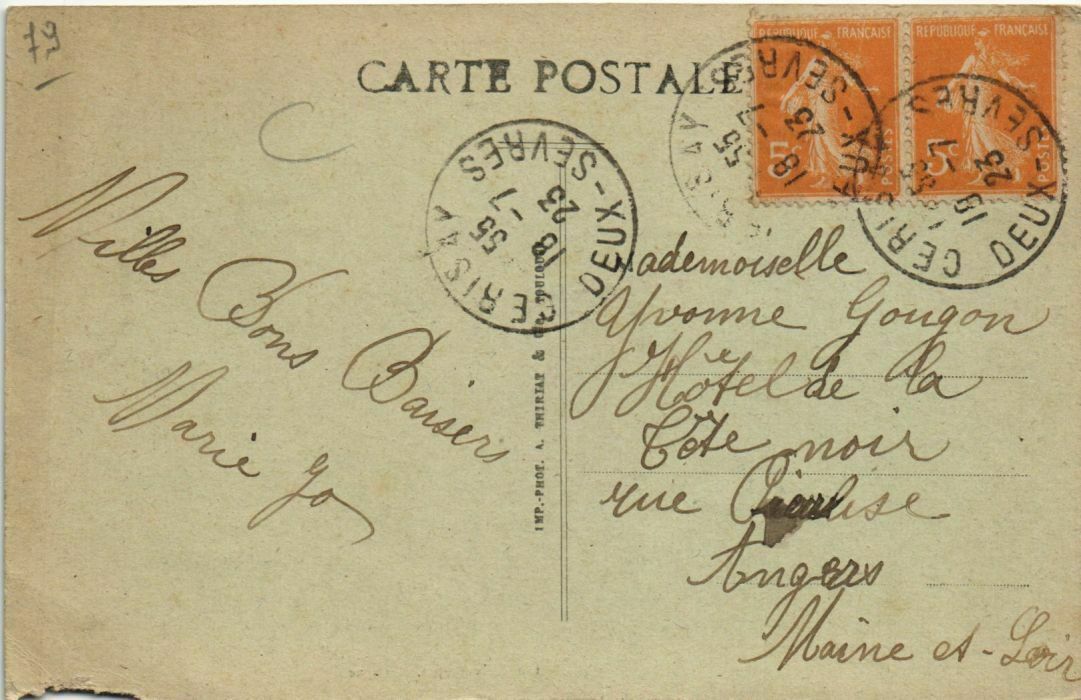 79
CARTE POSTALE
RÉPUBLIQUE FRANÇAISE
5c POSTES
RÉPUBLIQUE FRANÇAISE
5c POSTES
CERISAY
18 55
18 - 7
23
DEUX-SEVRES
CERISAY
18 - 7
23
DEUX-SEVRES
CERISAY
18 - 7
23
DEUX-SEVRES
Milles
Bons Baisers
Marie Jo
IMP.-PHOT. A. THIRIAT & TOULOUSE
Mademoiselle
Yvonne Gougon
Hôtel de la
Tête noir
rue
Angers
Maine et-Loir